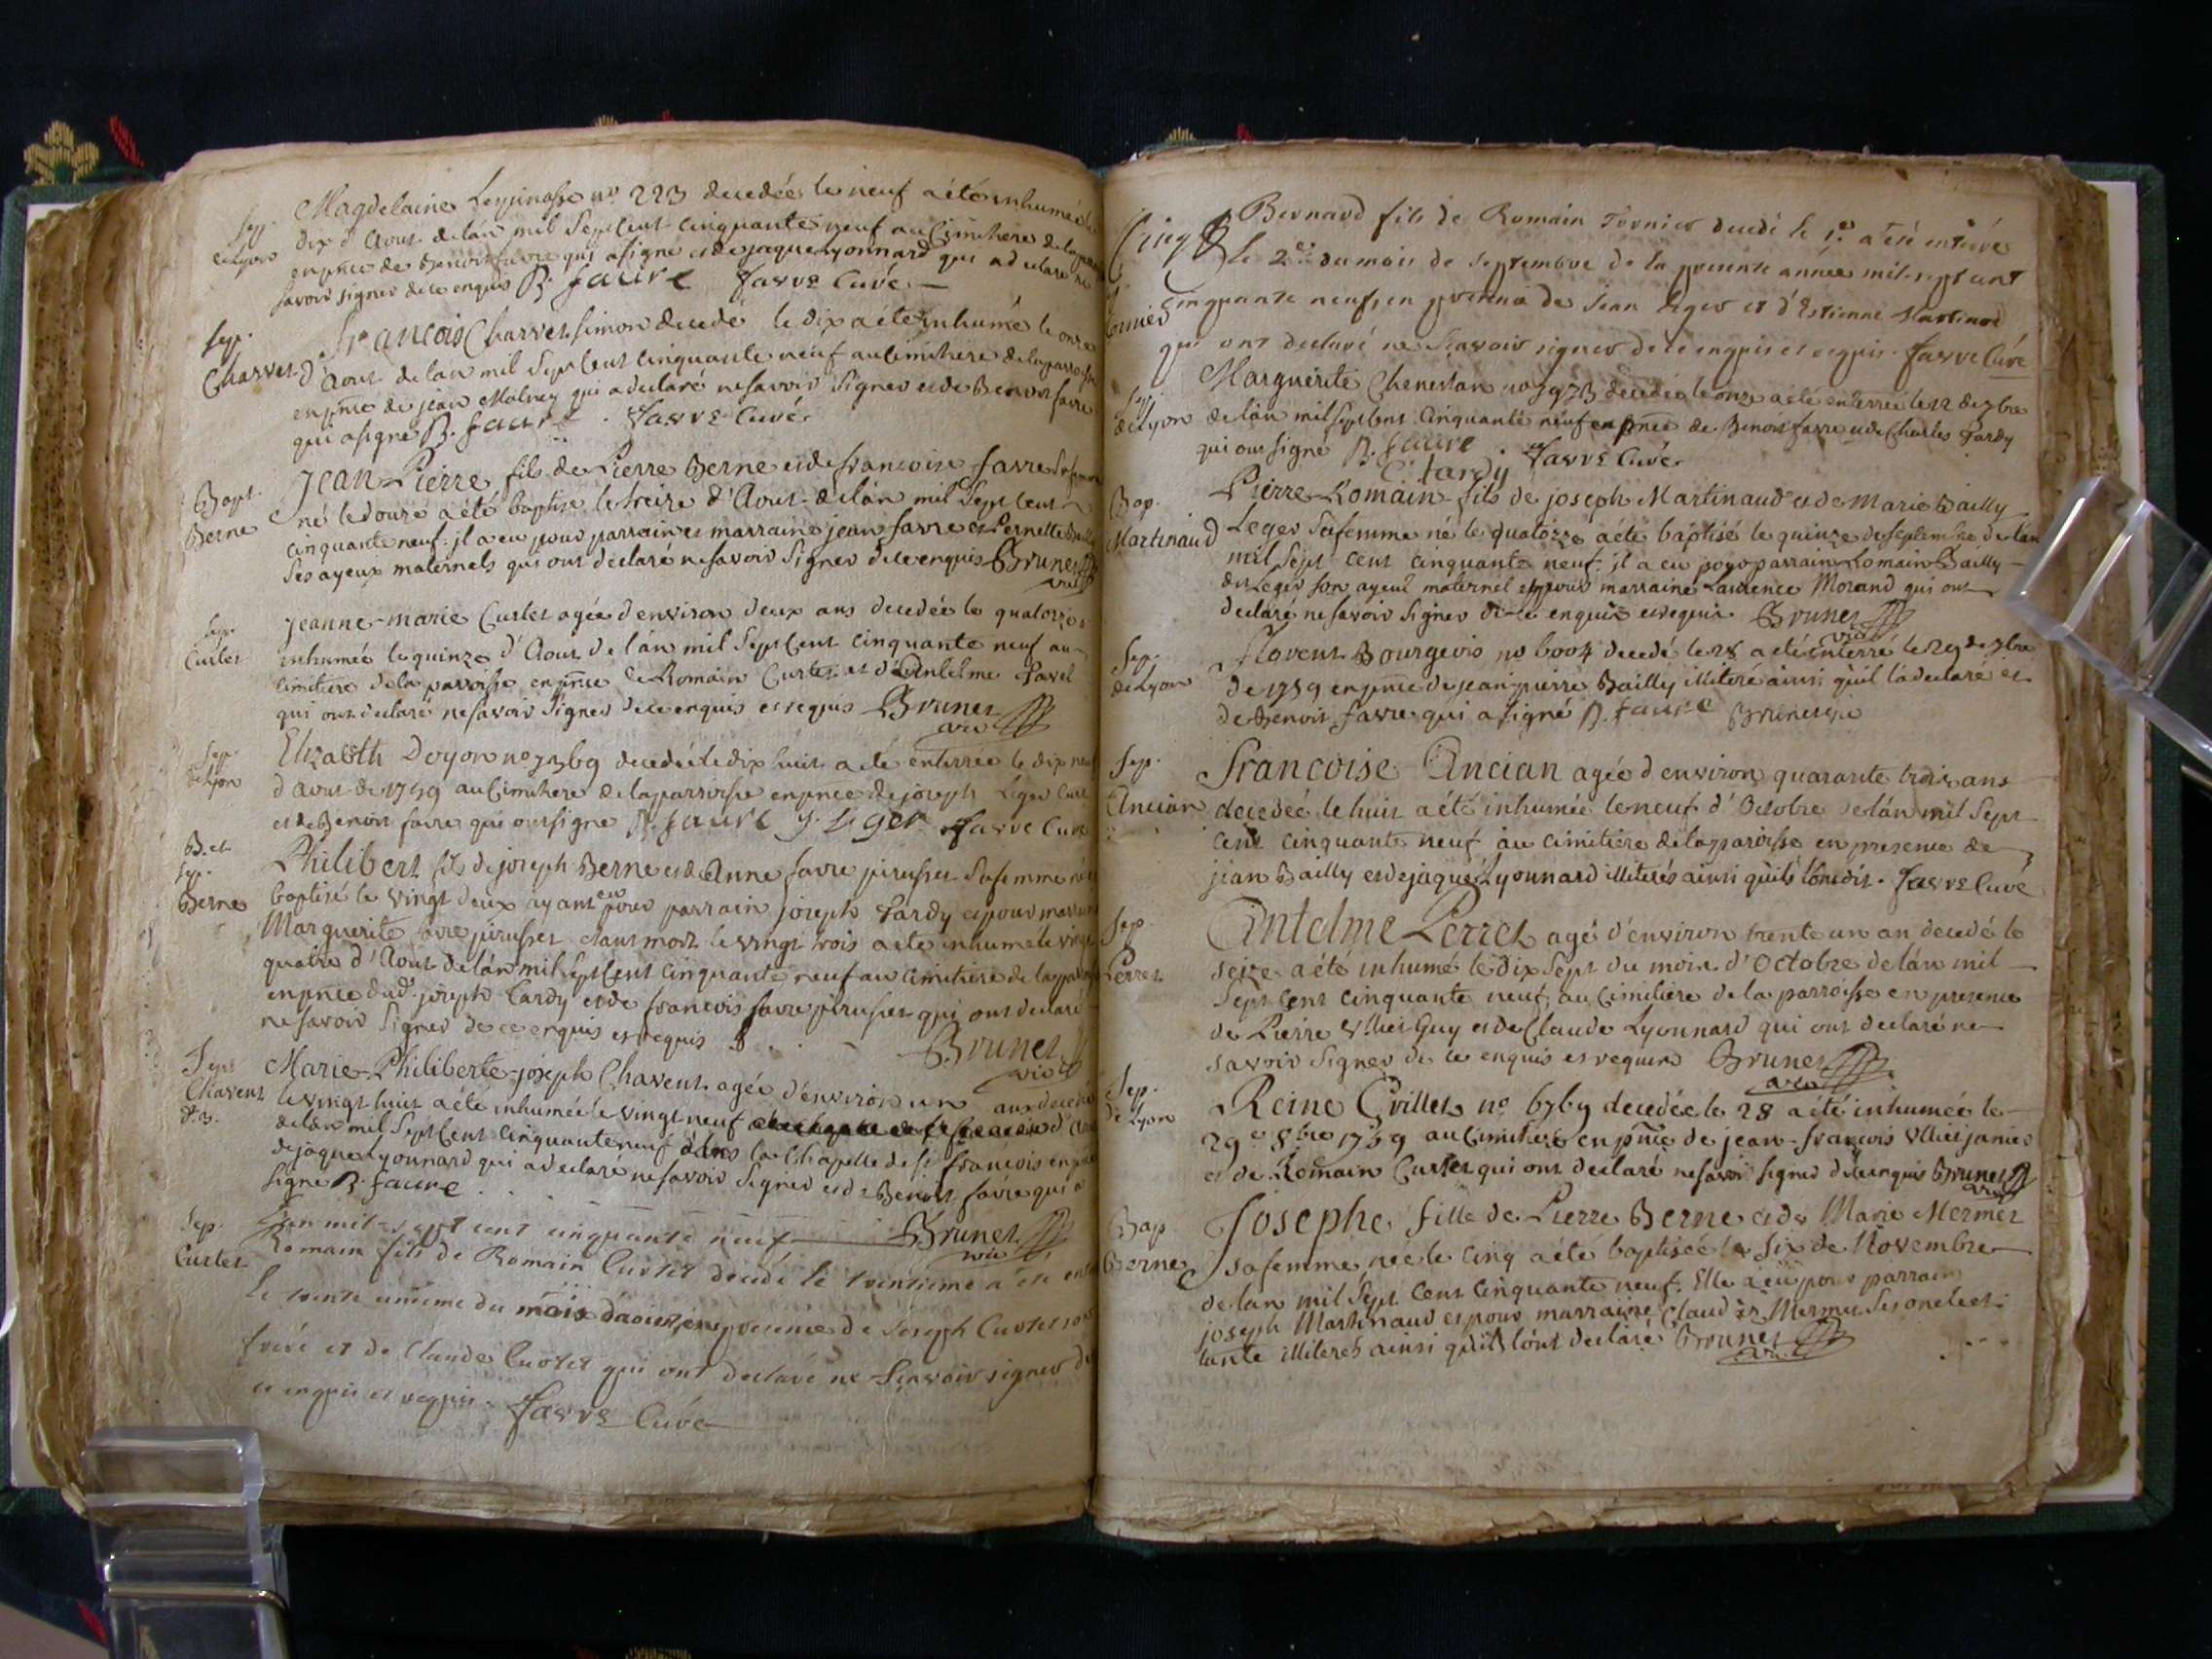 Sep.
de Lyon
Magdelaine no 223 decedée le neuf a été inhumée le
dix d'Aout de l'an mil Sept Cent cinquante neuf au Cimithere de la
en pnce de Benoit favre qui a signé et de jaque Lyonnard qui a declaré ne
savoir signer de ce enquis B. faure favre Curé
Sep.
Charvet
francois Charvet Simon decedé le dix a été inhumé le onze
d'Aout de l'an mil Sept Cent Cinquante neuf au Cimithere de la parroisse
en pnce de jean Molney qui a declaré ne savoir signer et de Benoit favre
qui a signé B. faure favre Curé
Bapt.
Berne
Jean Pierre fils de Pierre Berne et de francoise favre Sa femme
né le douze a été baptise le treize d'Aout de l'an mil Sept Cent
cinquante neuf. il a eu pour parrain et marraine jean favre et Pernette
Ses ayeux maternels qui ont declaré ne savoir signer de ce enquis Brunet
vic
Sep.
Curtet
jeanne-marie Curtet agée d'environ deux ans decedée le quatorze
inhumée le quinze d'Aout de l'an mil Sept Cent cinquante neuf au
cimitiere de la parroisse en pnce de Romain Curtet et d'Antelme favel
qui ont declaré ne savoir signer de ce enquis et requis Brunet
vic
Sep.
de Lyon
Elizabeth Doyon no 7569 decedée le dix huit a été enterrée le dix neuf
d'Aout de 1759 au Cimithere de la parroisse en pnce de joseph Leger
et de Benoit favre qui ont signé B. faure J. Liger favre Curé
B. et
Sep.
Berne
Philibert fils de joseph Berne et de Anne favre pirusset Sa femme né
baptisé le vingt deux ayant eu pour parrain joseph Tardy et pour marraine
Marguerite favre pirusset etant mort le vingt trois a été inhumé le vingt
quatre d'Aout de l'an mil Sept Cent cinquante neuf au cimitiere de la
en pnce dud. joseph Tardy et de francois favre pirusset qui ont declaré
ne savoir signer de ce enquis et requis Brunet
vic
Sep.
Chavent
Marie-Philiberte-joseph Chavent agée d'environ un ans decedée
le vingt huit a été inhumée le vingt neuf
de l'an mil Sept Cent Cinquante neuf dans la Chapelle de St francois en pnce
de jaque Lyonnard qui a declaré ne savoir signer et de Benoit favre qui a
signé B. faure
l'an mil sept cent cinquante neuf Brunet
vic
Sep.
Curtet
Romain fils de Romain Curtet decedé le trentieme a été
le trente unieme du mois d'aoust en presence de Joseph Curtet son
frere et de Claude Curtet qui ont declaré ne scavoir signer de
ce enquis et requis. favre Curé
Tornier
Bernard fils de Romain Tornier decedé le 1er a été enterré
le 2e du mois de septembre de la presente année mil sept cent
cinquante neuf, en presence de Jean Leger et d'Estienne Martinod
qui ont declaré ne scavoir signer de ce enquis et requis. favre Curé
Sep.
de Lyon
Marguerite Chenestan no 3973 decedée le onze a été enterrée le 12 de 7bre
de l'an mil Sept Cent Cinquante neuf en pnce de Benoit favre et de Charles Tardy
qui ont signé B. faure C. tardy favre Curé
Bap.
Martinaud
Pierre-Romain fils de joseph Martinaud et de Marie Bailly
Leger Sa femme né le quatorze a été baptisé le quinze de septembre de l'an
mil Sept Cent Cinquante neuf. il a eu pour parrain Romain Bailly
du Leger son ayeul maternel et pour marraine Laurence Morand qui ont
declaré ne savoir signer de ce enquis et requis. Brunet
vic
Sep.
de Lyon
Florent Bourgeois no 6004 decedé le 28 a été enterré le 29 de 7bre
de 1759 en pnce de jean-pierre Bailly illiteré ainsi qu'il l'a declaré et
de Benoit favre qui a signé B. faure Brunet vic
Sep.
Ancian
Francoise Ancian agée d'environ quarante trois ans
decedeé le huit a été inhumée le neuf d'Octobre de l'an mil Sept
cent cinquante neuf au cimitiere de la parroisse en presence de
jean Bailly et de jaque Lyonnard illiterés ainsi qu'ils l'ont dit. favre Curé
Sep.
Perret
Antelme Perret agé d'environ trente un an decedé le
seize a été inhumé le dix Sept du mois d'Octobre de l'an mil
Sept Cent cinquante neuf, au Cimitiere de la parroisse en presence
de Pierre Vlliet Guy et de Claude Lyonnard qui ont declaré ne
savoir signer de ce enquis et requis Brunet
vic
Sep.
de Lyon
Reine Crillet no 6769 decedée le 28 a été inhumeé le
29e 8bre 1759 au Cimithere en pnce de jean-francois Vlliet janier
et de Romain Curtet qui ont declaré ne savoir signer de ce enquis Brunet
vic
Bap
Berne
Josephe fille de Pierre Berne et de Marie Mermet
sa femme née le cinq a été baptisée le Six de Novembre
de l'an mil Sept Cent Cinquante neuf. Elle a eu pour parrain
joseph Martinaud et pour marraine Claudine Mermet Ses oncle et
tante illiterés ainsi qu'ils l'ont declaré Brunet
vic